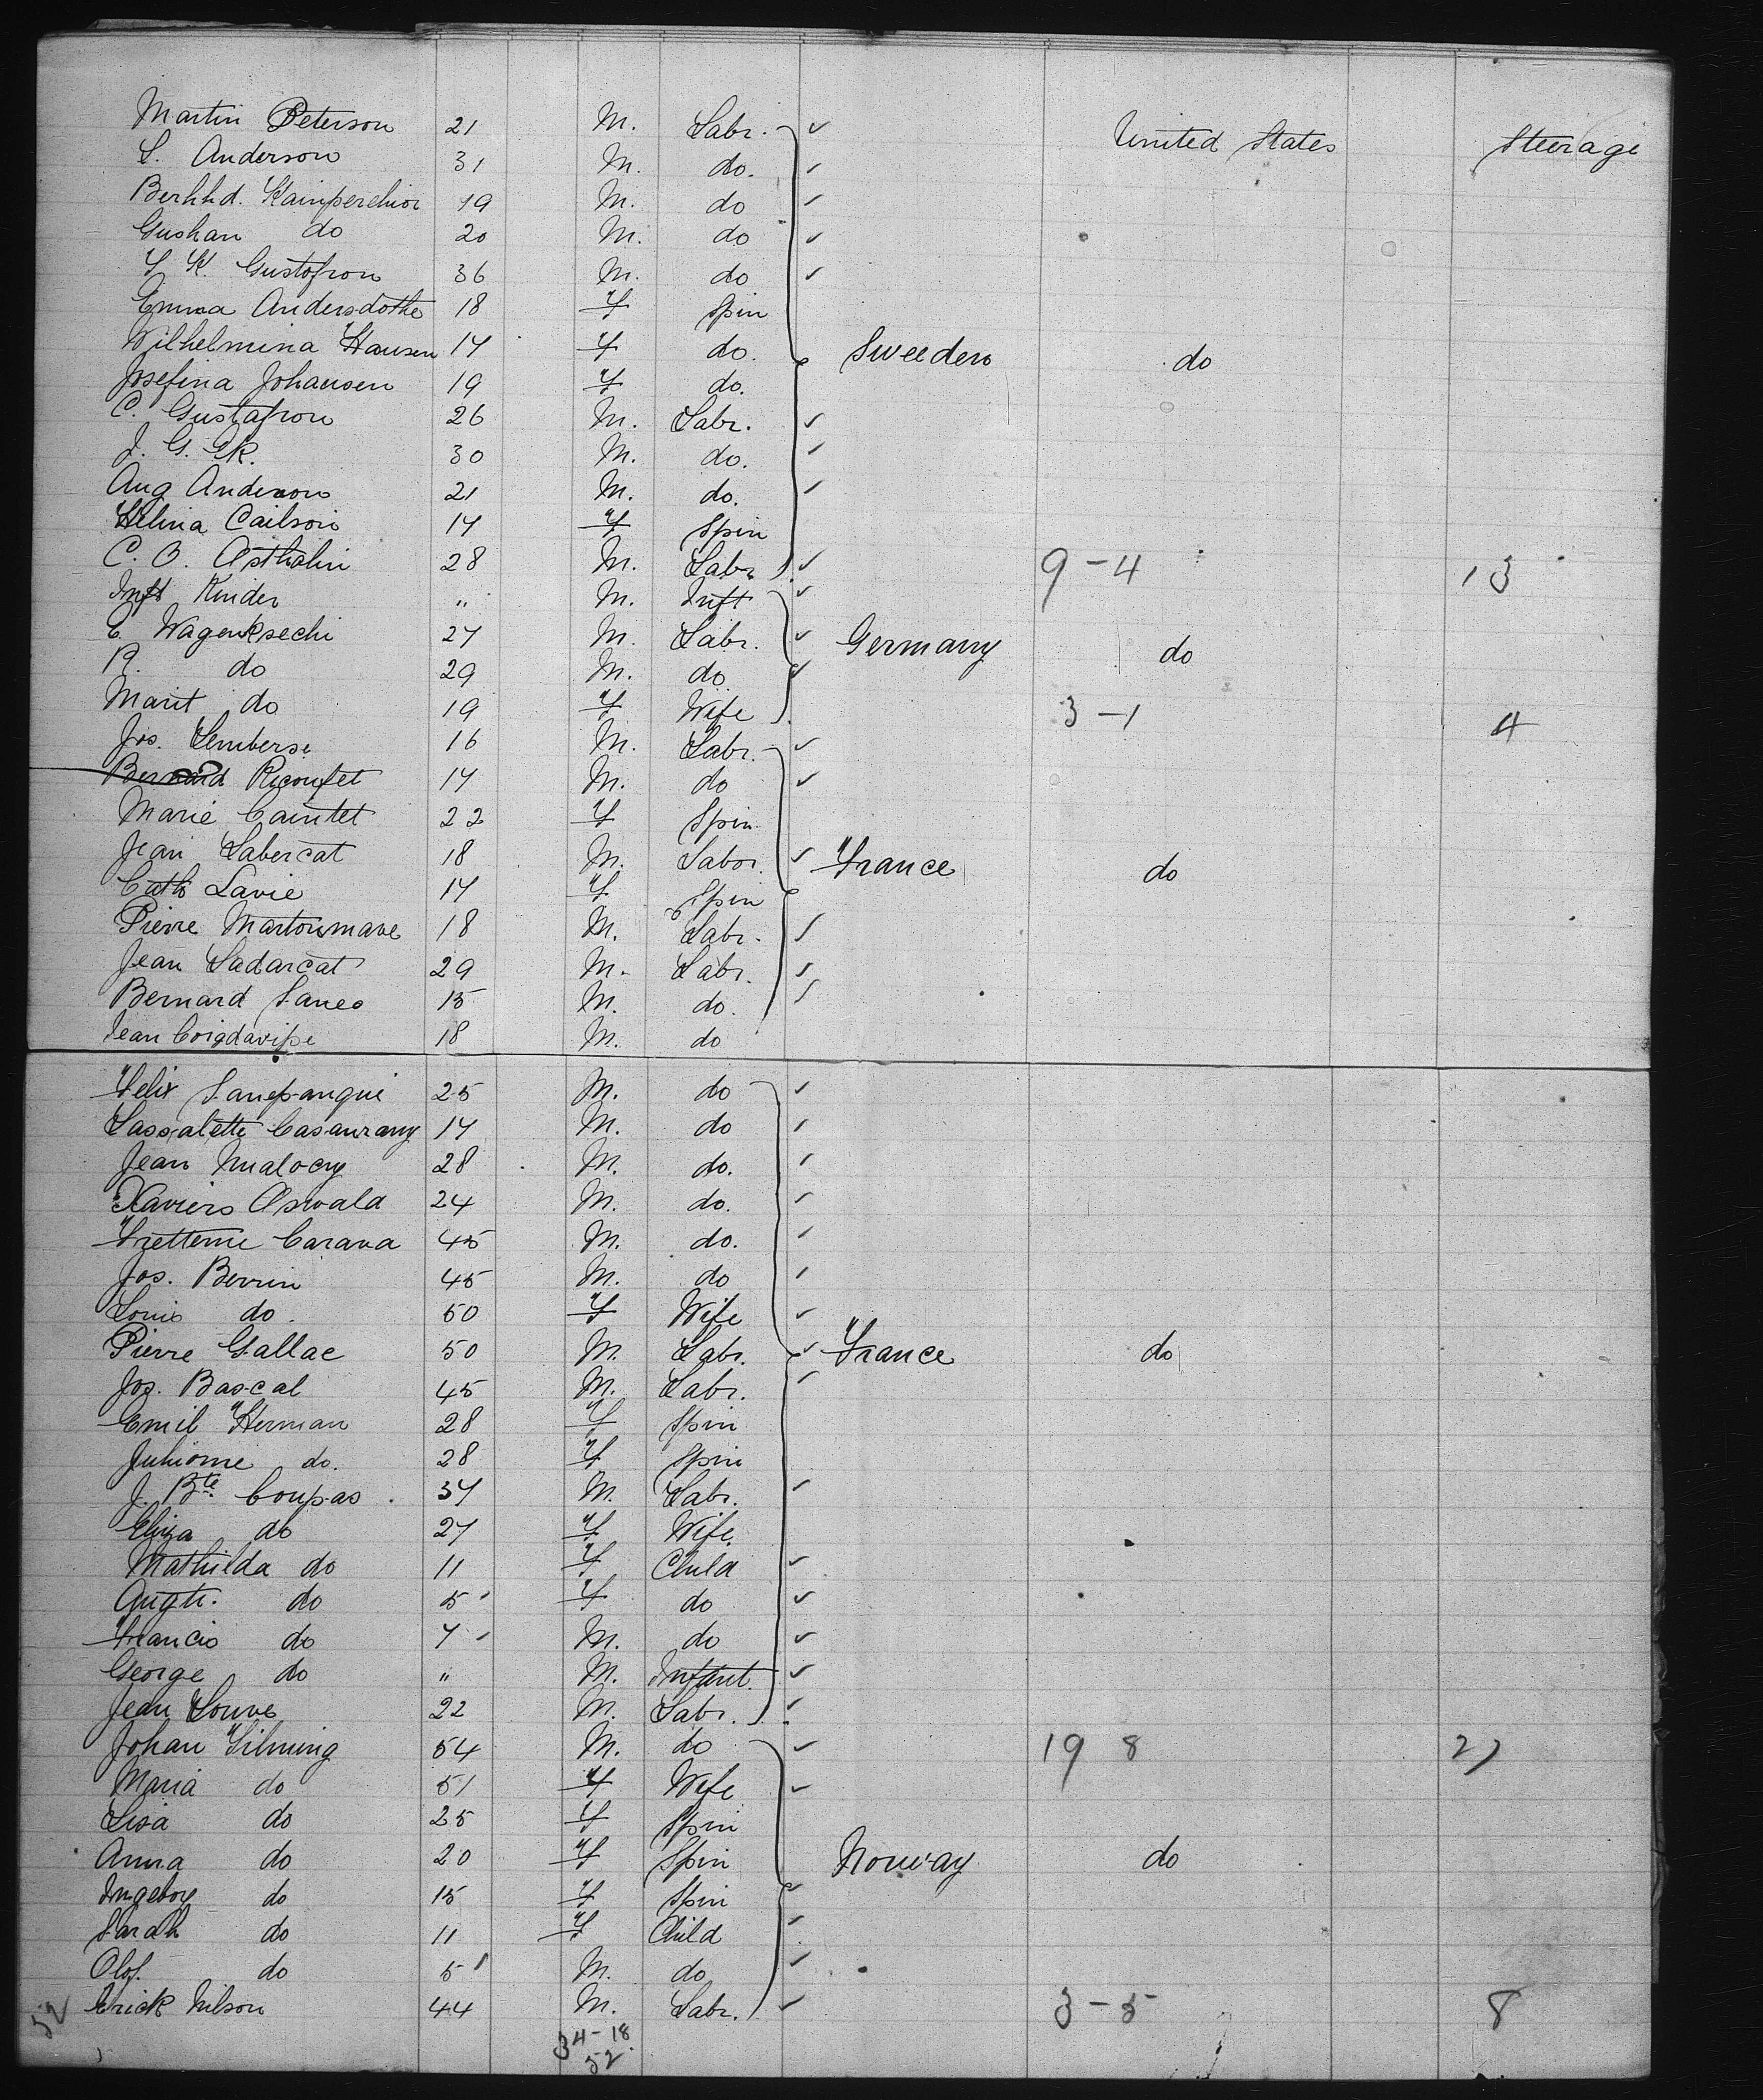 Martin Peterson 21 M. Labr. United States Steerage
S. Anderson 31 M. do.
Berhhd. Kamperchior 19 M. do
Gushan do 20 M. do
S K. Gustofson 36 M. do
Emma Andersdotte 18 F Spin
Wilhelmina Hansen 17 F do. Sweeden do
Josefina Johansen 19 F do.
C. Gustafson 26 M. Labr.
J. G. Ek. 30 M. do.
Aug Anderson 21 M. do.
Helina Carlson 17 F Spin
C. O. Asthalin 28 M. Labr 9-4 13
Inft Kinder " M. Inft
E Wagenksechi 27 M. Labr. Germany do
R. do 29 M. do
Marit do 19 F Wife 3-1 4
Jos. Lemberse 16 M. Labr.
Bernard 17 M. do
Marie Caintet 22 F Spin
Jean Labercat 18 M. Labor. France do
Cath Lavie 17 F Spin
Pierre Martonmave 18 M. Labr.
Jean Ladarcat 29 M. Labr.
Bernard Sanes 15 M. do.
Jean 18 M. do
Felix 25 M. do
Lassalette 17 M. do
Jean 28 M. do.
Xaviers Oswald 24 M. do.
Carava 45 M. do.
Jos. Berrin 45 M. do
Louis do. 50 F Wife
Pierre Gallac 50 M. Labr. France do
Jos. Bascal 45 M. Labr.
Emil Herman 28 F Spin
do. 28 F Spin
J. Bte. Coupas 37 M. Labr.
Eliza do 27 F Wife
Mathilda do 11 F Child
Augte. do 5 F do
Francis do 7 M. do
George do " M. Infant.
Jean Louve 22 M. Labr.
Johan Silming 54 M. do 19 8 27
Maria do 51 F Wife
Lisa do 25 F Spin
Anna do 20 F Spin Norway do
Ingeborg do 15 F Spin
Sarah do 11 F Child
Olof. do 5 M. do
Erick Nilson 44 M. Labr. 3-5 8
52 34-18.
52